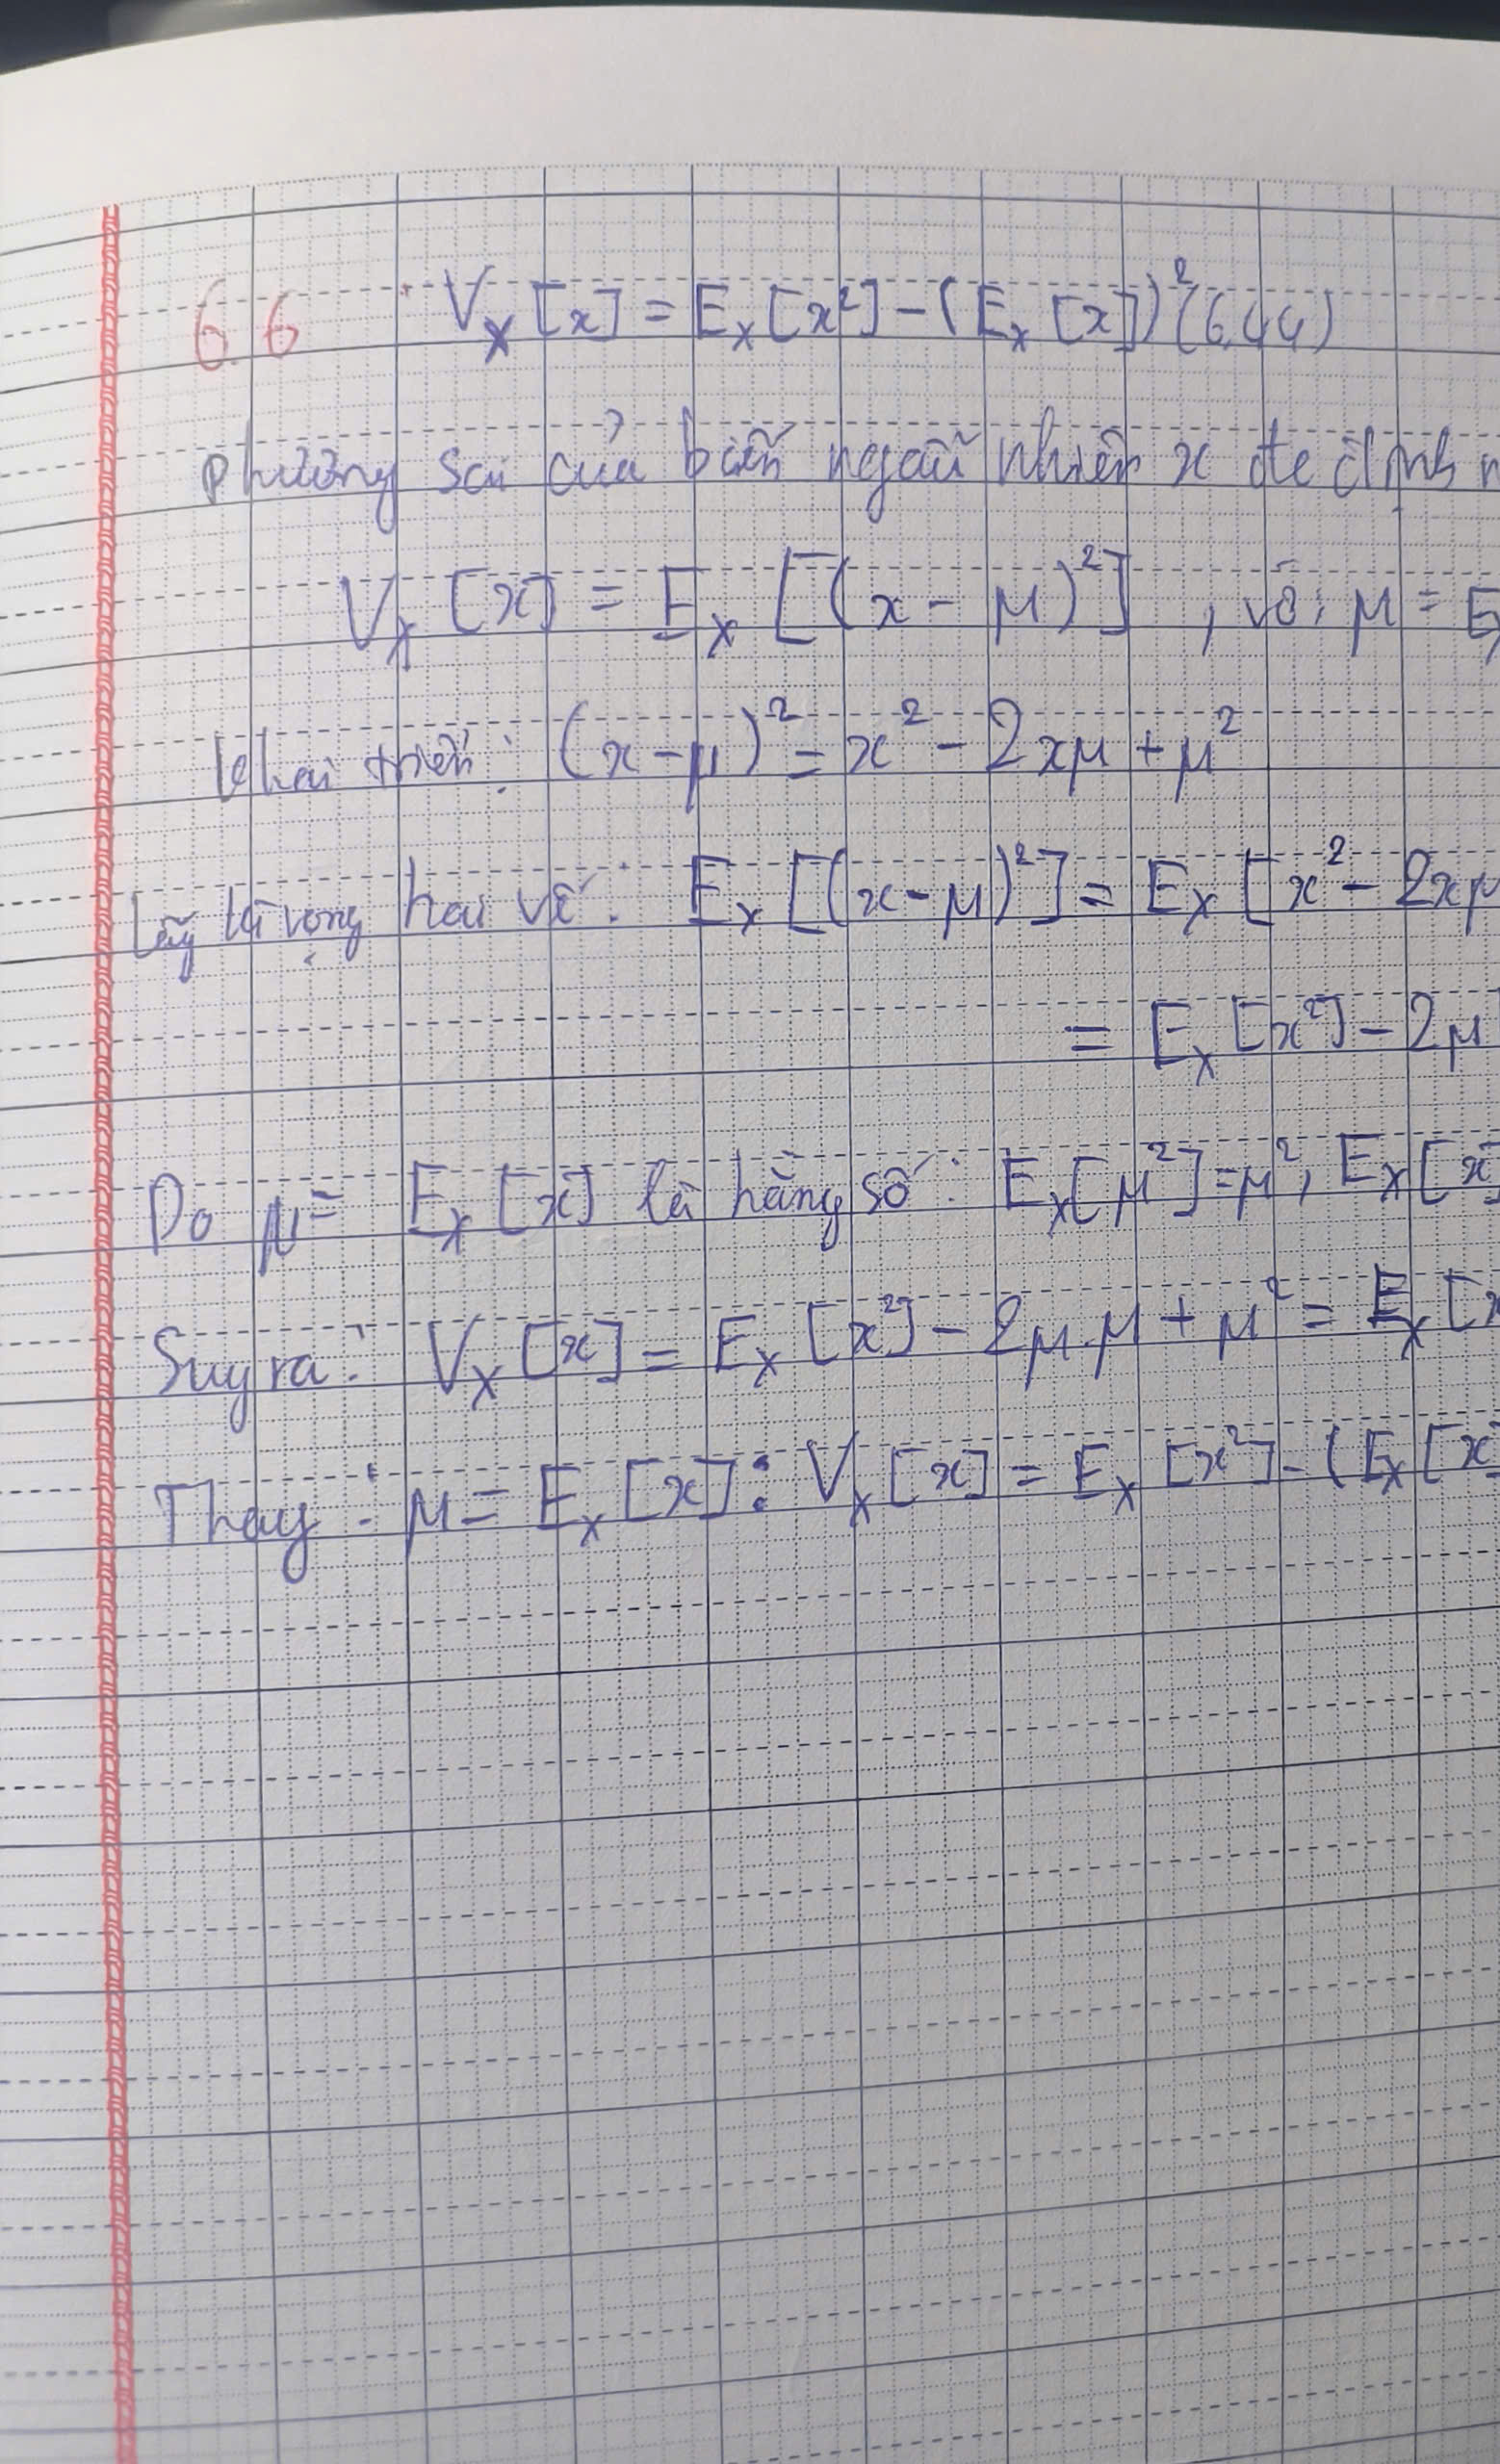 6.6 V_X [x] = E_X [x²] - (E_X [x])² (6.44)
Phương sai của biến ngẫu nhiên x
V_X [x] = E_X [(x - μ)²] , với μ = E
Khai triển : (x - μ)² = x² - 2xμ + μ²
Lấy kì vọng hai vế : E_X [(x - μ)²] = E_X [x² - 2xμ
= E_X [x²] - 2μ
Do μ = E_X [x] là hằng số : E_X [μ²] = μ², E_X [x]
Suy ra : V_X [x] = E_X [x²] - 2μ.μ + μ² = E_X [x
Thay : μ = E_X [x] : V_X [x] = E_X [x²] - (E_X [x]